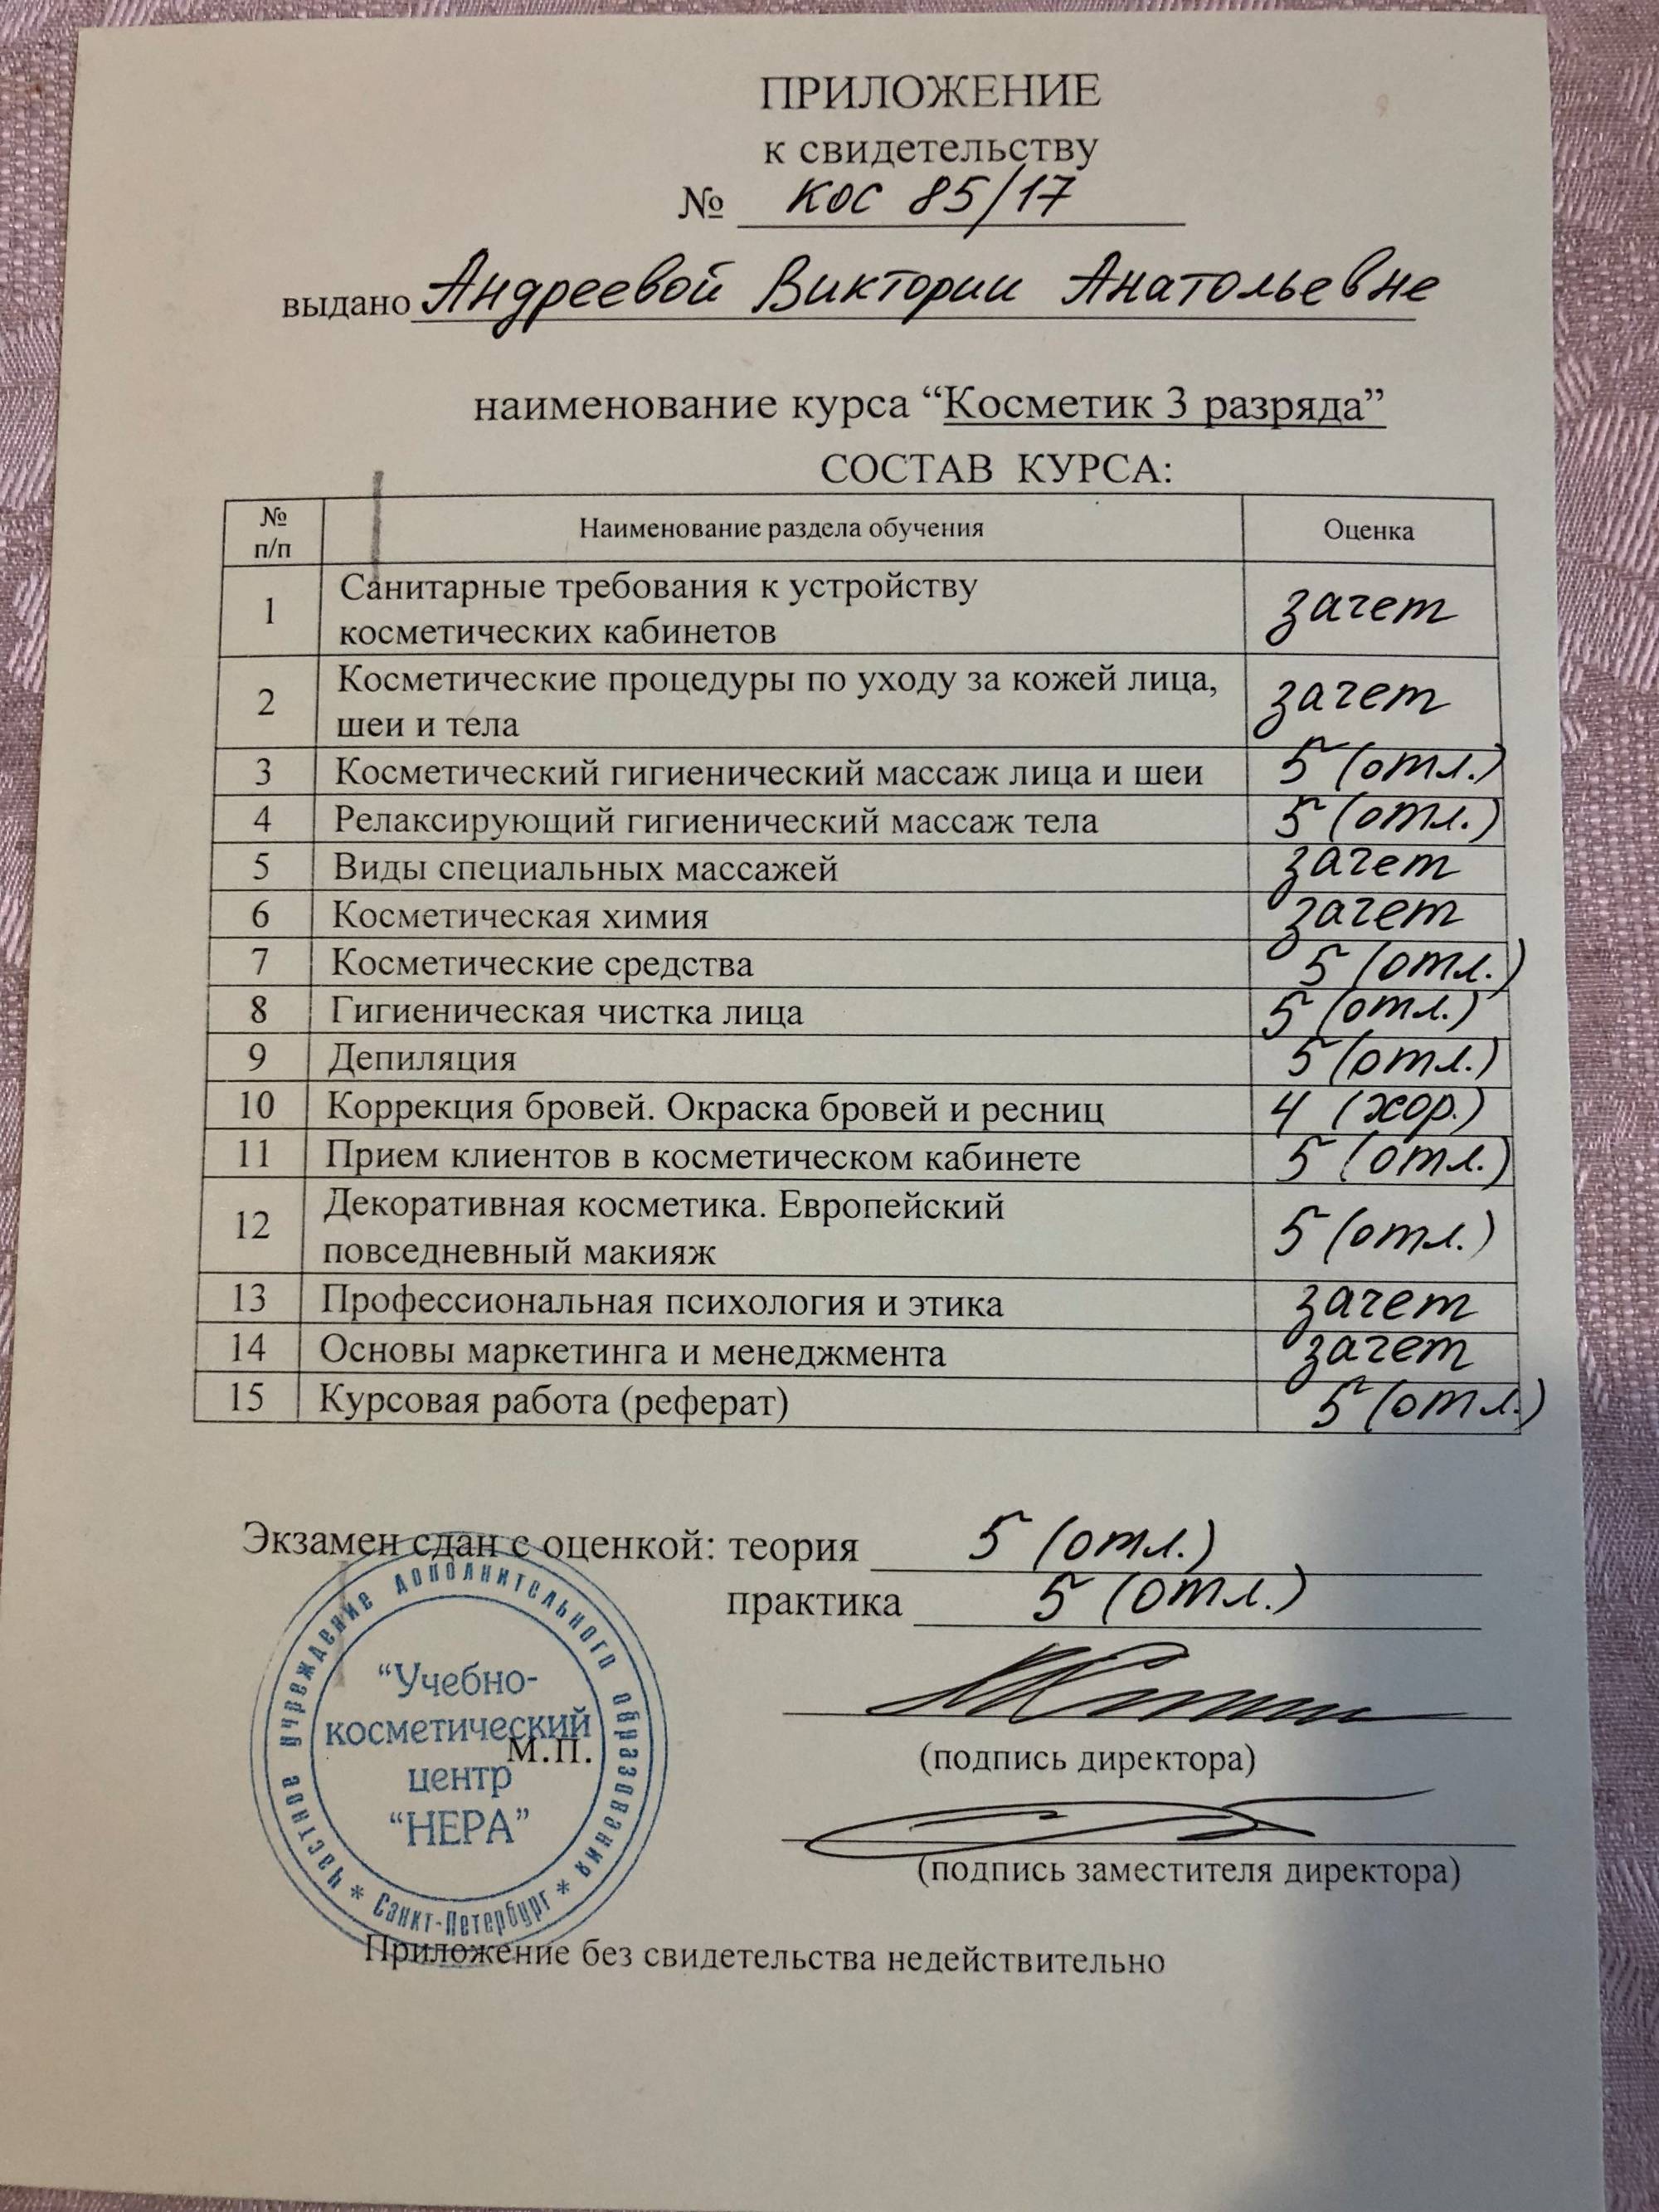 ПРИЛОЖЕНИЕ
к свидетельству
№ КОС 85/17
выдано Андреевой Виктории Анатольевне
наименование курса “Косметик 3 разряда”
СОСТАВ КУРСА:
№ п/п Наименование раздела обучения Оценка
1 Санитарные требования к устройству
косметических кабинетов зачет
2 Косметические процедуры по уходу за кожей лица,
шеи и тела зачет
3 Косметический гигиенический массаж лица и шеи 5 (отл.)
4 Релаксирующий гигиенический массаж тела 5 (отл.)
5 Виды специальных массажей зачет
6 Косметическая химия зачет
7 Косметические средства 5 (отл.)
8 Гигиеническая чистка лица 5 (отл.)
9 Депиляция 5 (отл.)
10 Коррекция бровей. Окраска бровей и ресниц 4 (хор.)
11 Прием клиентов в косметическом кабинете 5 (отл.)
12 Декоративная косметика. Европейский
повседневный макияж 5 (отл.)
13 Профессиональная психология и этика зачет
14 Основы маркетинга и менеджмента зачет
15 Курсовая работа (реферат) 5 (отл.)
Экзамен сдан с оценкой: теория 5 (отл.)
практика 5 (отл.)
(подпись директора)
(подпись заместителя директора)
Частное учреждение дополнительного образования
“Учебно-
косметический
центр
“НЕРА”
* Санкт-Петербург *
М.П.
Приложение без свидетельства недействительно